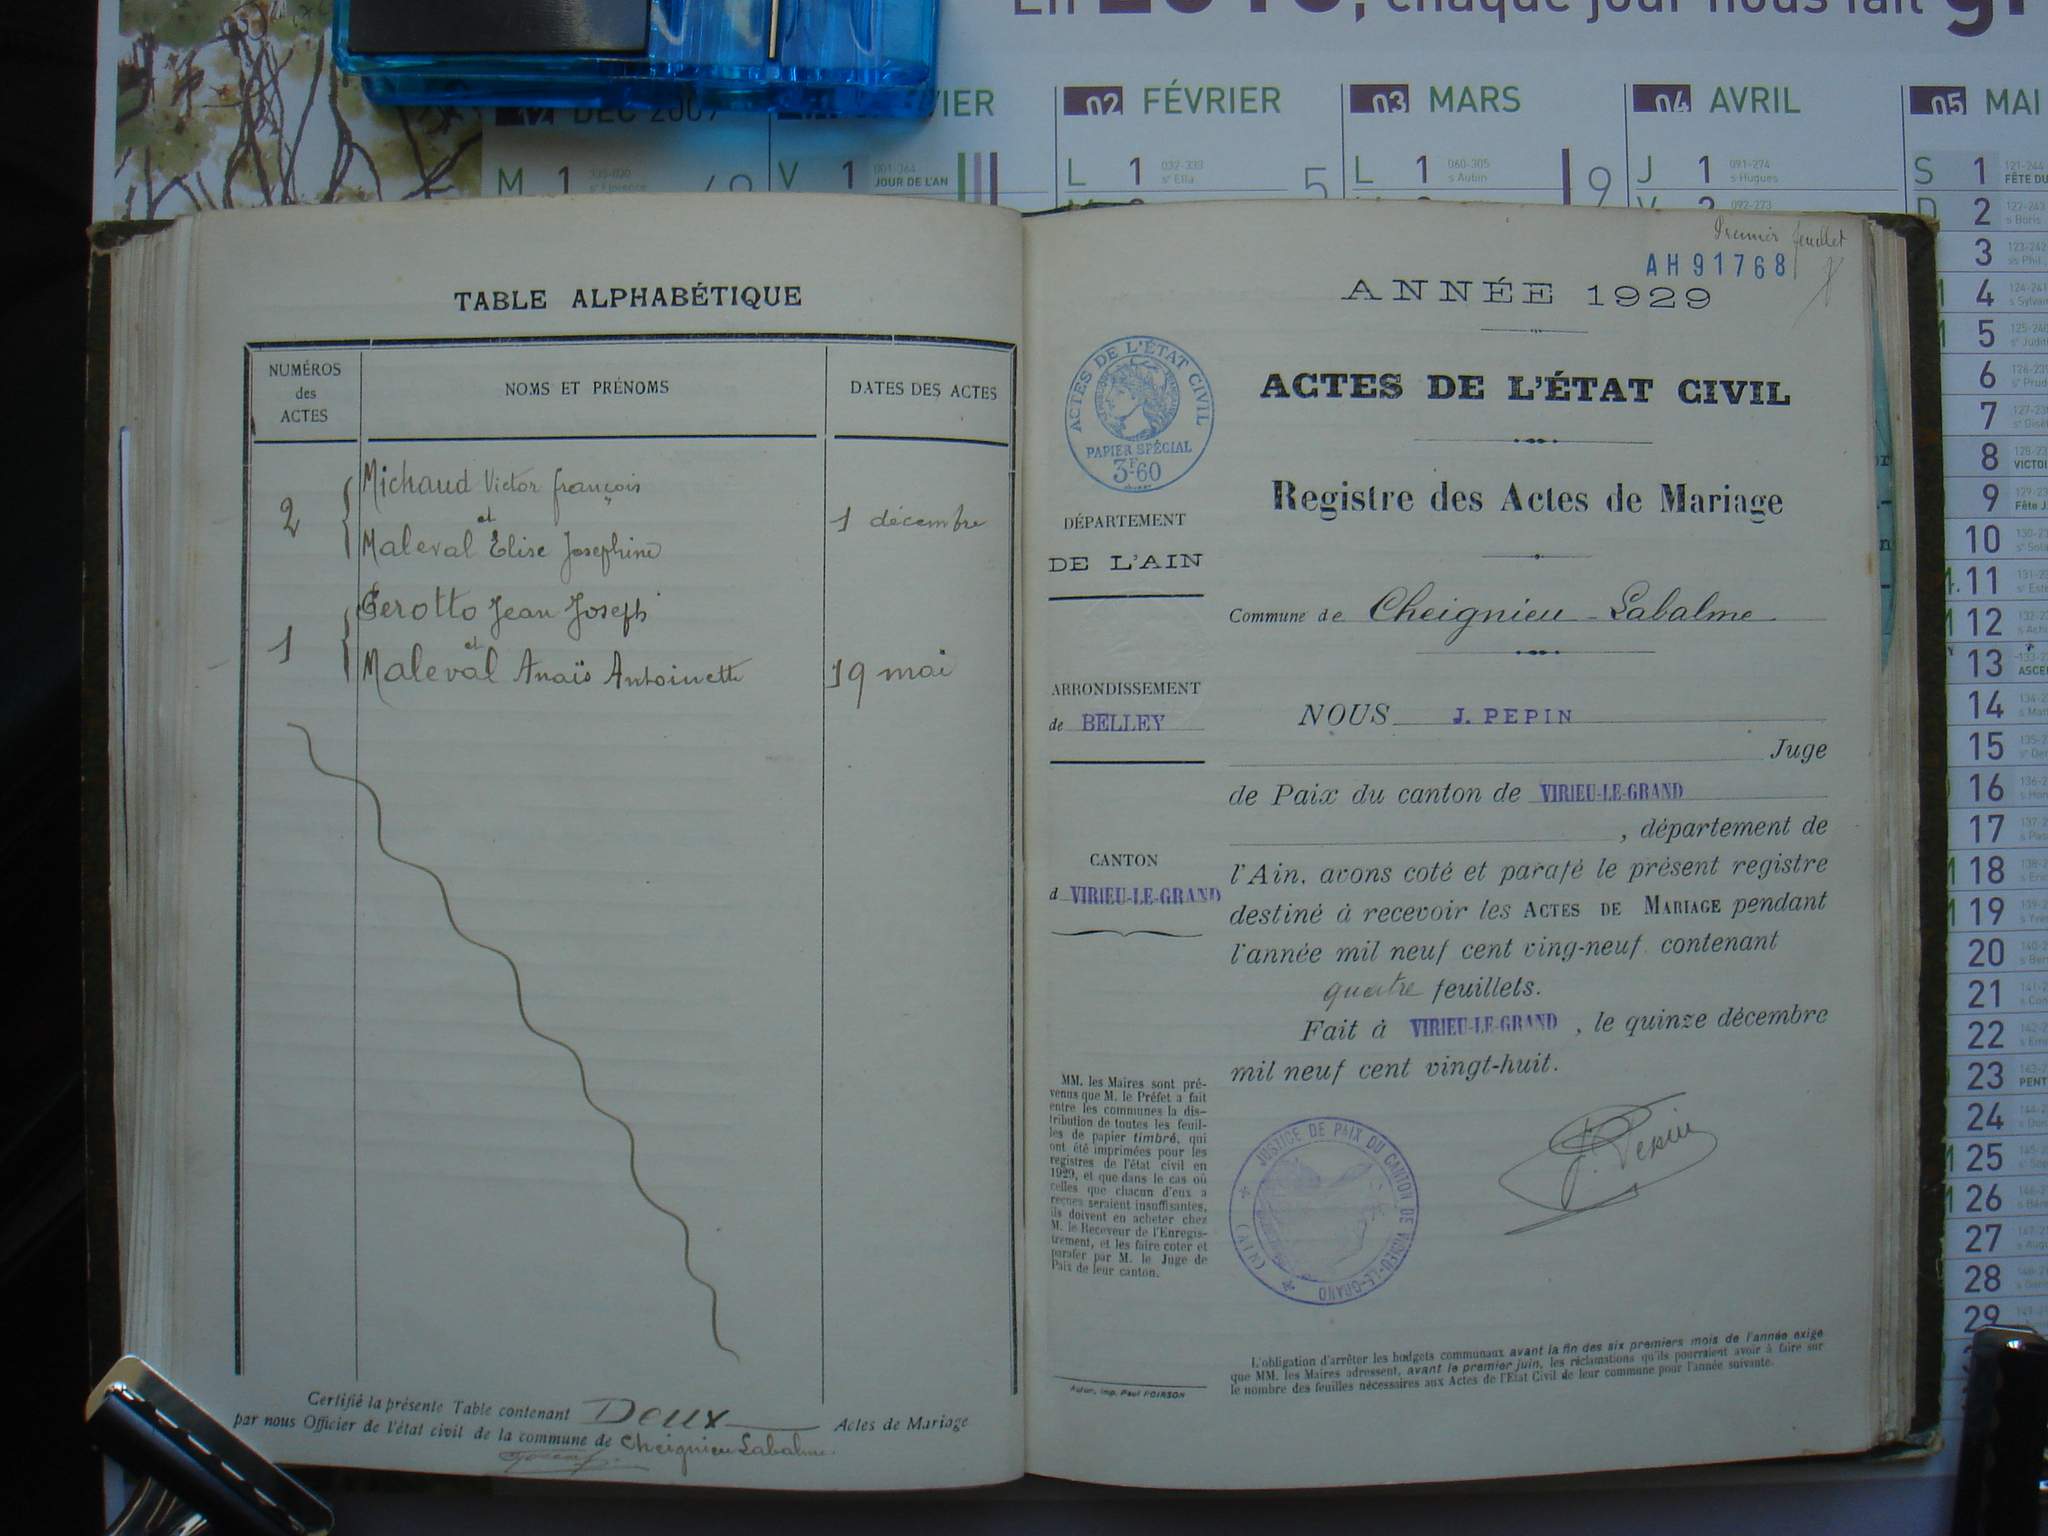 chaque jour nous fait
DEC 2009
02 FÉVRIER
03 MARS
04 AVRIL
05 MAI
M 1
V 1 001-364 JOUR DE L'AN
L 1 032-333 sᵉ Ella 5
L 1 060-305 s Aubin 9
J 1 091-274 s Hugues
S 1
TABLE ALPHABÉTIQUE
NUMÉROS des ACTES
NOMS ET PRÉNOMS
DATES DES ACTES
Michaud Victor françois
2 et 1 décembre
Maleval Elise Josephine
Gerotto Jean Joseph
1 et
Maleval Anaïs Antoinette 19 mai
Certifié la présente Table contenant Deux Actes de Mariage
par nous Officier de l'état civil de la commune de Cheignieu Labalme.
Premier feuillet
AH91768
ANNÉE 1929
ACTES DE L'ÉTAT CIVIL
PAPIER SPÉCIAL
3F60
ACTES DE L'ÉTAT CIVIL
Registre des Actes de Mariage
DÉPARTEMENT
DE L'AIN
Commune de Cheignieu-Labalme
ARRONDISSEMENT
de BELLEY
CANTON
d VIRIEU-LE-GRAND
NOUS J. PEPIN
Juge
de Paix du canton de VIRIEU-LE-GRAND
, département de
l'Ain, avons coté et parafé le présent registre
destiné à recevoir les ACTES DE MARIAGE pendant
l'année mil neuf cent ving-neuf contenant
quatre feuillets.
Fait à VIRIEU-LE-GRAND , le quinze décembre
mil neuf cent vingt-huit.
MM. les Maires sont pré-
venus que M. le Préfet a fait
entre les communes la dis-
tribution de toutes les feuil-
les de papier timbré, qui
ont été imprimées pour les
registres de l'état civil en
1929, et que dans le cas où
celles que chacun d'eux a
reçues seraient insuffisantes,
ils doivent en acheter chez
M. le Receveur de l'Enregis-
trement, et les faire coter et
parafer par M. le Juge de
Paix de leur canton.
JUSTICE DE PAIX DU CANTON DE VIRIEU-LE-GRAND
(AIN)
J. Pepin
L'obligation d'arrêter les budgets communaux avant la fin des six premiers mois de l'année exige
que MM. les Maires adressent, avant le premier juin, les réclamations qu'ils pourraient avoir à faire sur
le nombre des feuilles nécessaires aux Actes de l'État Civil de leur commune pour l'année suivante.
Autun, imp. Paul POIRSON
2
3
4
5
6
7
8
9
10
11
12
13
14
15
16
17
18
19
20
21
22
23
24
25
26
27
28
29